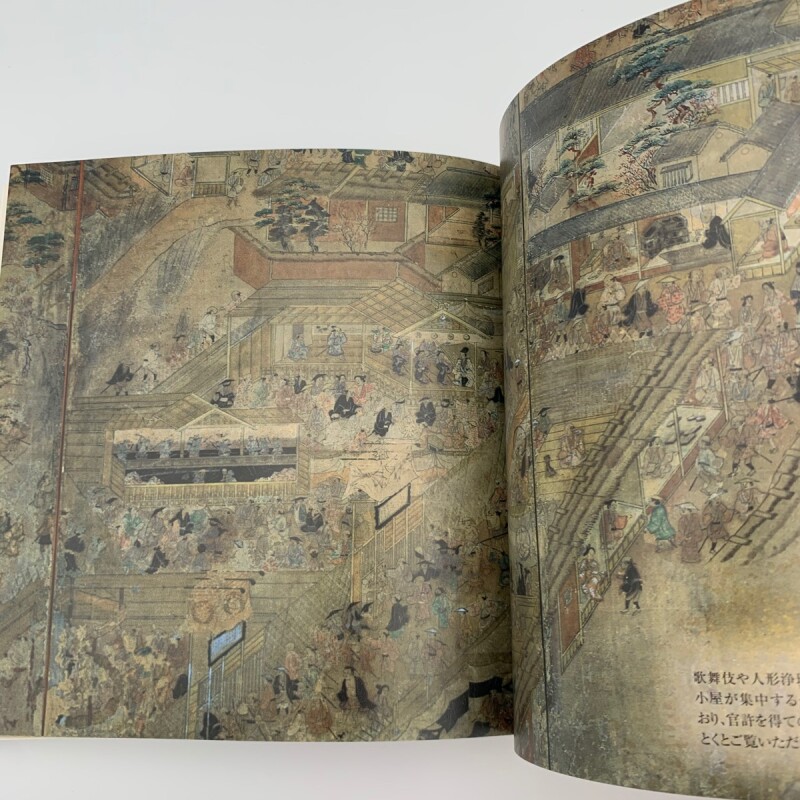 歌舞伎や人形浄
小屋が集中する
おり、官許を得ての
とくとご覧いただ